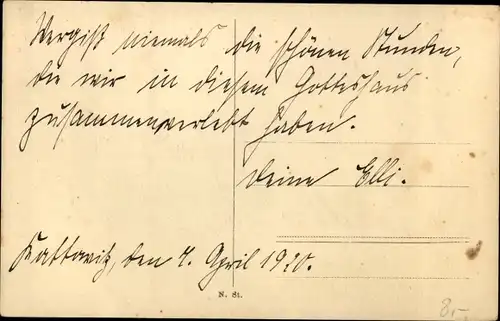 Vergiß niemals die schönen Stunden,
die wir in diesem Gotteshaus
zusammen verlebt haben.
Deine Elli.
Kattowitz, den 7. April 1920.
N. St.
8,-